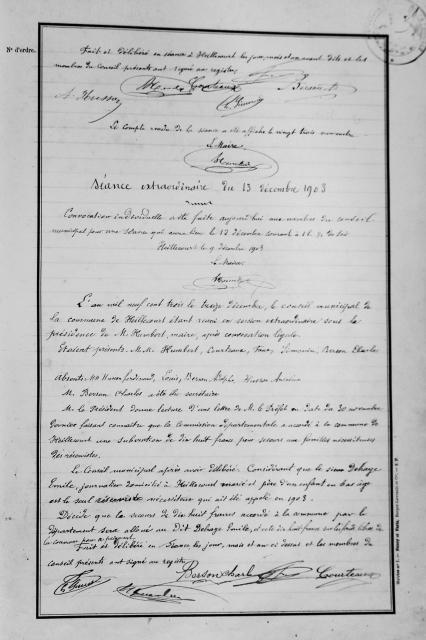 N° d'ordre.
Fait et délibéré en séance à Heillecourt les jour, mois et an avant dits et les
membres du Conseil présents ont signé au registre
A. Husson Courteaux
Le compte rendu de la séance a été affiché le vingt trois novembre
Le Maire
Séance extraordinaire du 13 décembre 1903
Convocation individuelle a été faite aujourd'hui aux membres du conseil
municipal pour une séance qui aura lieu le 13 décembre courant à du soir
Heillecourt le 9 décembre 1903
Le Maire
L'an mil neuf cent trois le treize décembre, le conseil municipal de
la commune de Heillecourt étant réuni en session extraordinaire sous la
présidence de M. Humbert, maire, après convocation légale.
Étaient présents. MM. Humbert, Courteaux, Simonin, Berson Charles
Absents. MM Husson Ferdinand, Louis, Berson Adolphe, Husson
M. Berson Charles a été élu secrétaire
M. le Président donne lecture d'une lettre de M. le Préfet en date du 30 novembre
dernier faisant connaître que la Commission départementale a accordé à la commune de
Heillecourt une subvention de dix huit francs pour secours aux familles nécessiteuses
des réservistes.
Le Conseil municipal après avoir délibéré. Considérant que le sieur Dehaye
Emile, journalier domicilié à Heillecourt marié et père d'un enfant en bas âge
est le seul réserviste nécessiteux qui ait été appelé en 1903
Décide que le secours de dix huit francs accordé à la commune par le
département sera alloué au dit Dehaye Emile, et celle de huit francs sur les fonds libres de
la commune
Fait et délibéré en séance les jour, mois et an ci dessus et les membres du
conseil présents ont signé au registre
Berson Charles Courteaux